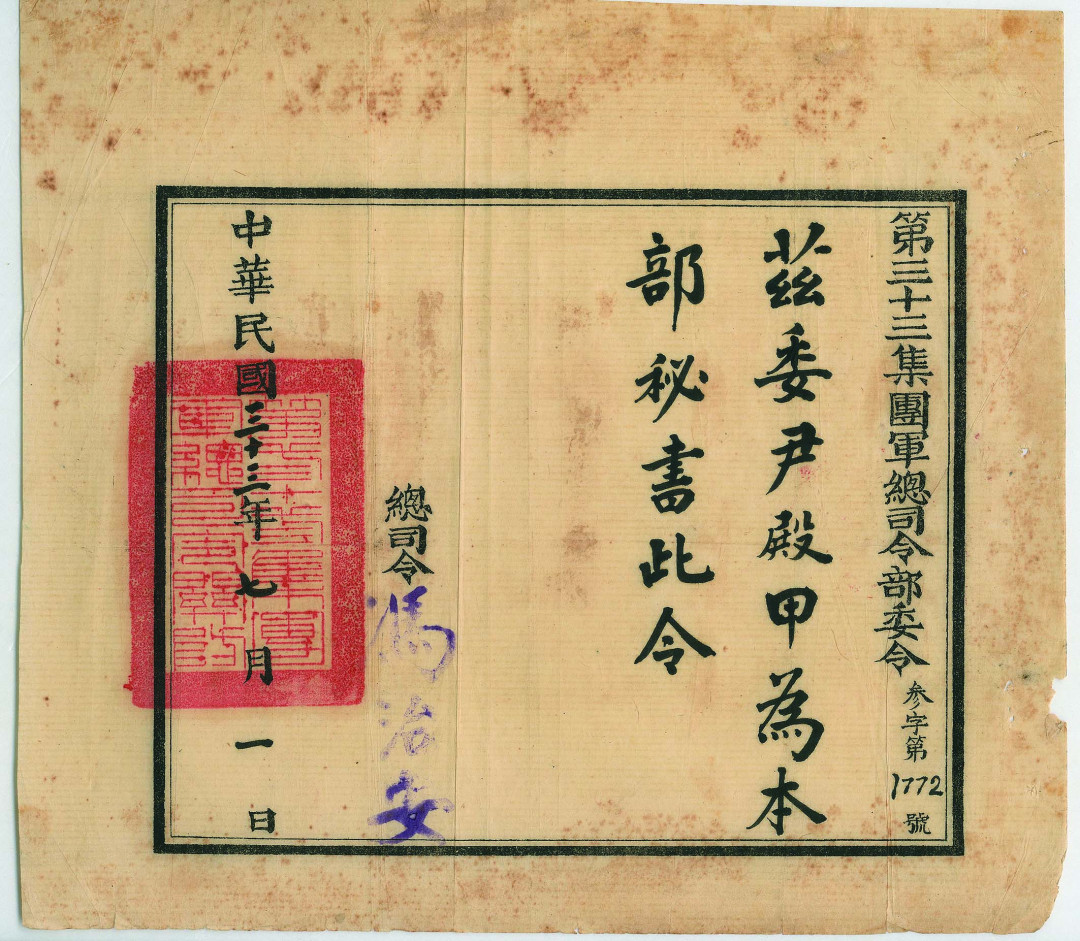 第三十三集團軍總司令部委令 參字第1772號
茲委尹殿甲為本
部秘書此令
總司令 馮治安
中華民國三十三年七月一日